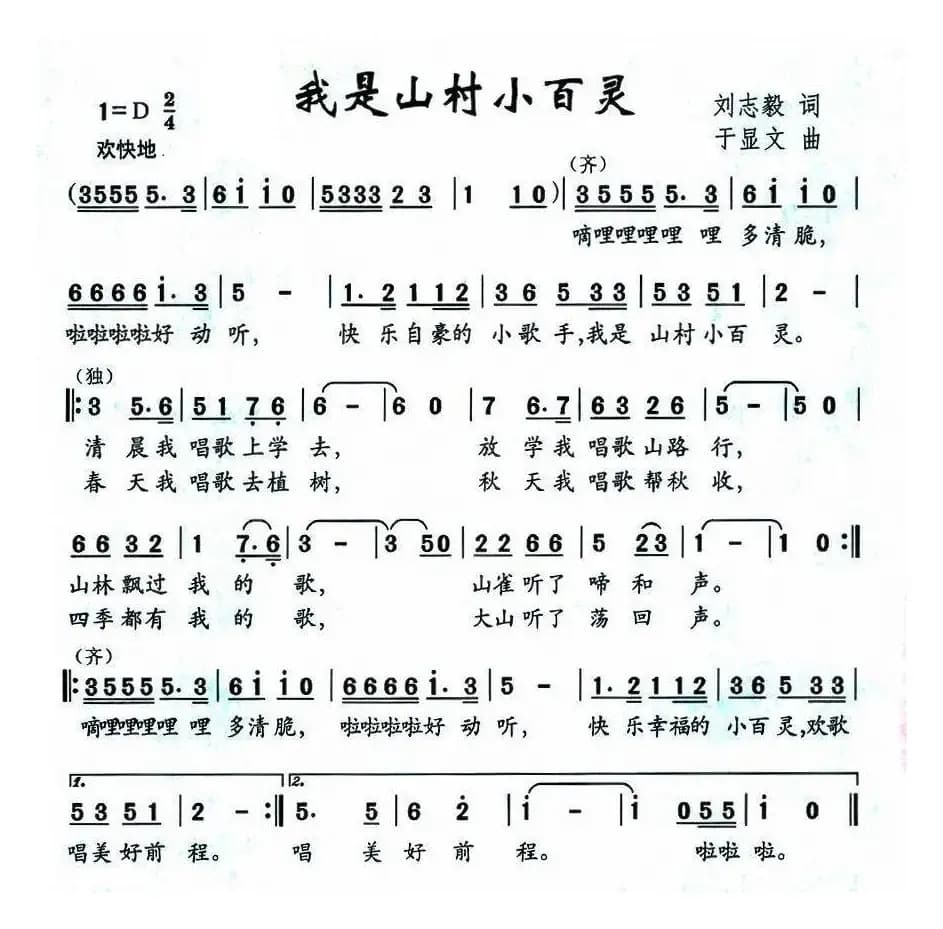 我是山村小百灵
1=D 2/4
刘志毅 词
于显文 曲
欢快地
(齐)
(3555 5. 3|6i i0|5333 2 3|1 10)|3555 5. 3|6i i0|
嘀哩哩哩哩 哩 多清脆,
6666 i. 3|5 -|1. 2 1 12|3 6 5 33|53 51|2 -|
啦啦啦啦好 动听, 快乐自豪的 小歌手,我是 山村小百灵。
(独)
‖:3 5.6|51 7̣ 6̣|6 -|6 0|7 6.7|63 26|5 -|50|
清晨我 唱歌上学去, 放学我 唱歌山路行,
春天我 唱歌去植树, 秋天我 唱歌帮秋收,
66 32|1 7̣.6̣|3 -|3 50|22 66|5 23|1 -|1 0:‖
山林飘过 我的歌, 山雀听了 啼和声。
四季都有 我的歌, 大山听了 荡回声。
(齐)
‖:3555 5. 3|6i i0|6666 i. 3|5 -|1. 2 1 12|36 5 33|
嘀哩哩哩哩 哩 多清脆, 啦啦啦啦好 动听, 快乐幸福的 小百灵,欢歌
1. 2.
53 51|2 -:‖5. 5|6 2̇|i -|i 055|i 0‖
唱美好前程。 唱 美好前程。 啦啦 啦。